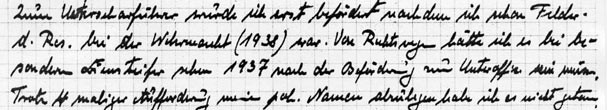 Zum Unterscharführer wurde ich erst befördert nachdem ich schon Feldw.
d. Res. bei der Wehrmacht (1938) war. Von Rechts wegen hätte ich es bei be-
sonderem Diensteifer schon 1937 nach der Beförderung zum Unteroffz. sein müssen.
Trotz 4 maliger Aufforderung meine pol. Namen abzulegen habe ich es nicht getan